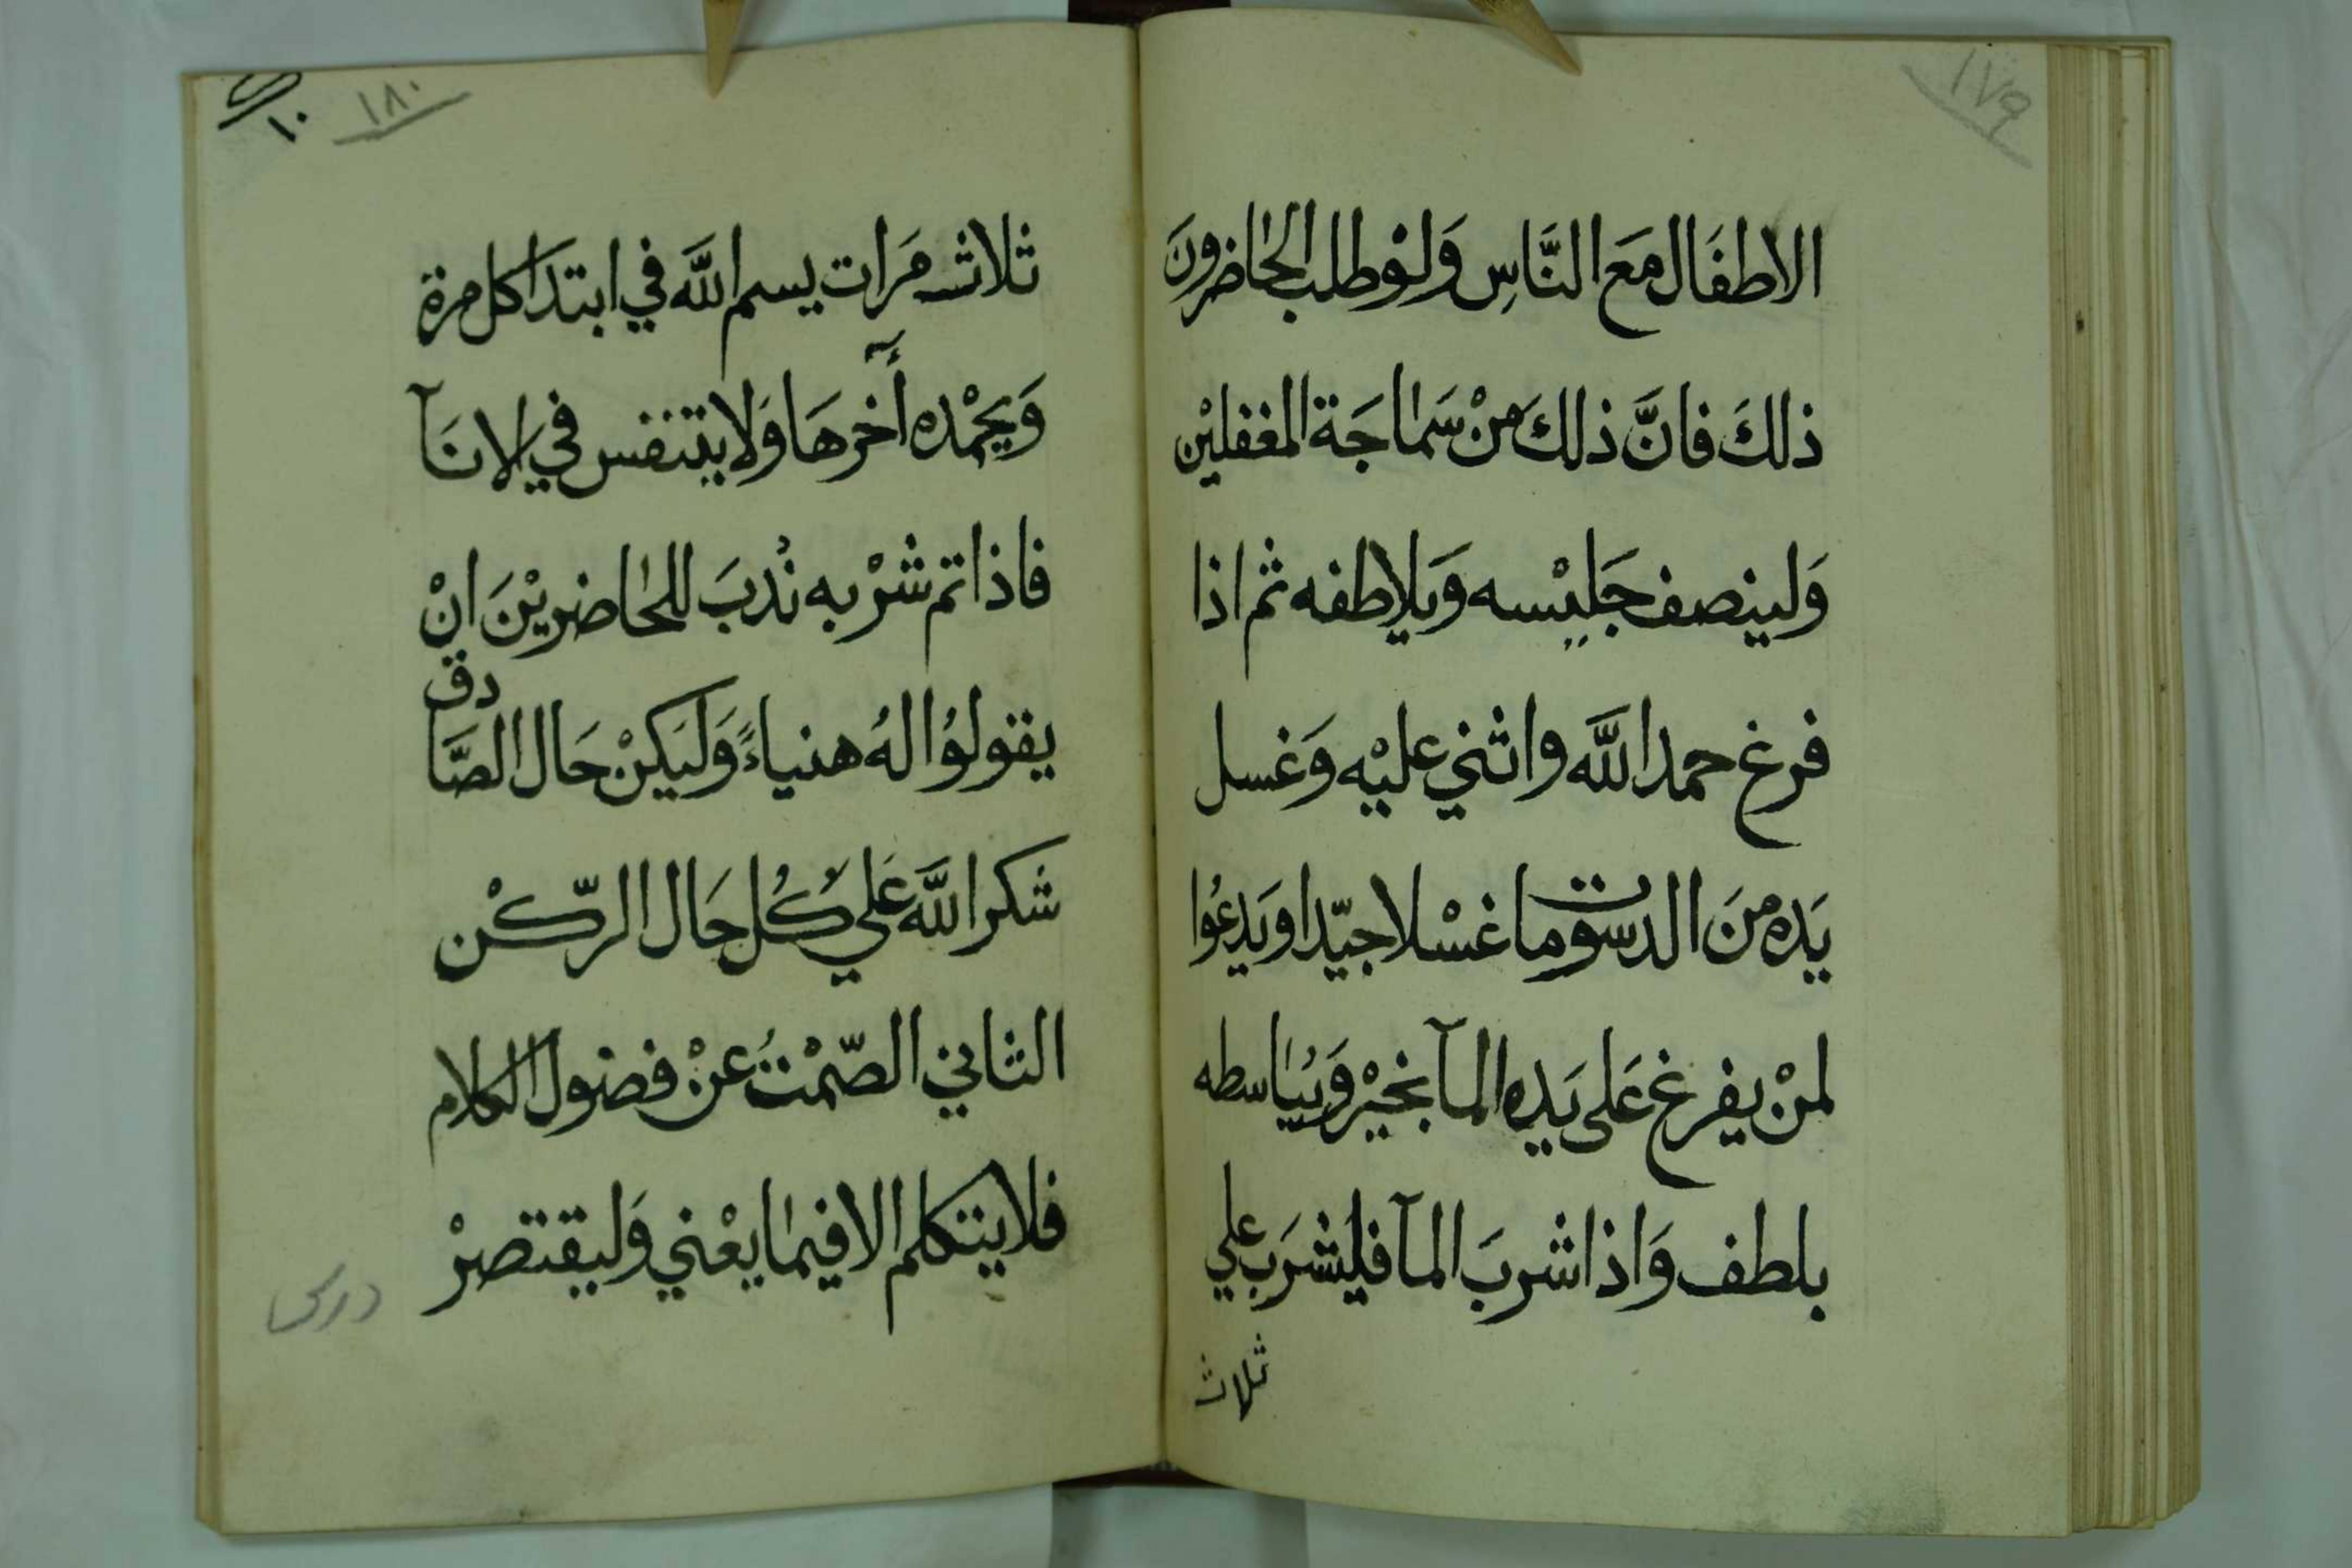 ١٧٩
الاطفَال مَعَ النَّاسِ وَلوْ طلب الحاضرونَ
ذلكَ فانَّ ذلكَ منْ سَماجَة المغفليْن
وَلينصف جَليْسه وَيلاطفه ثم اذا
فرغ حمد اللَّه واثني عليْه وَغسل
يَده منَ الدسومات غسْلا جيّدا ويَدعُوا
لمنْ يفرغ عَلى يَده المآ بخيْر وَيُباسطه
بلطف وَاذا شربَ المآ فليَشرَب علي
ثلاث
١٨٠
١٠
ثلاث مَرات يسم اللَّه في ابتدَا كل مرة
وَيحْمده أخرهَا وَلا يتنفس في الانَآ
فاذا تم شرْبه نُدبَ للحاضريْنَ انْ
يقولوُا لهُ هنياءً وَلَيكنْ حَال الصَّادق
شكر اللَّه عَلي كُل حَال الرّكْن
الثاني الصّمْتُ عنْ فضول الكلام
فلا يتكلم الا فيما يعْني وَليقتصرْ